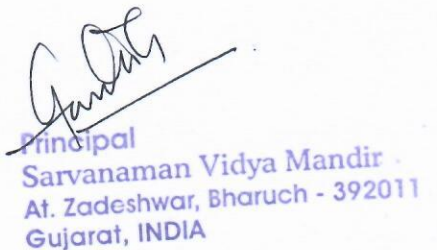 Principal
Sarvanaman Vidya Mandir
At. Zadeshwar, Bharuch - 392011
Gujarat, INDIA